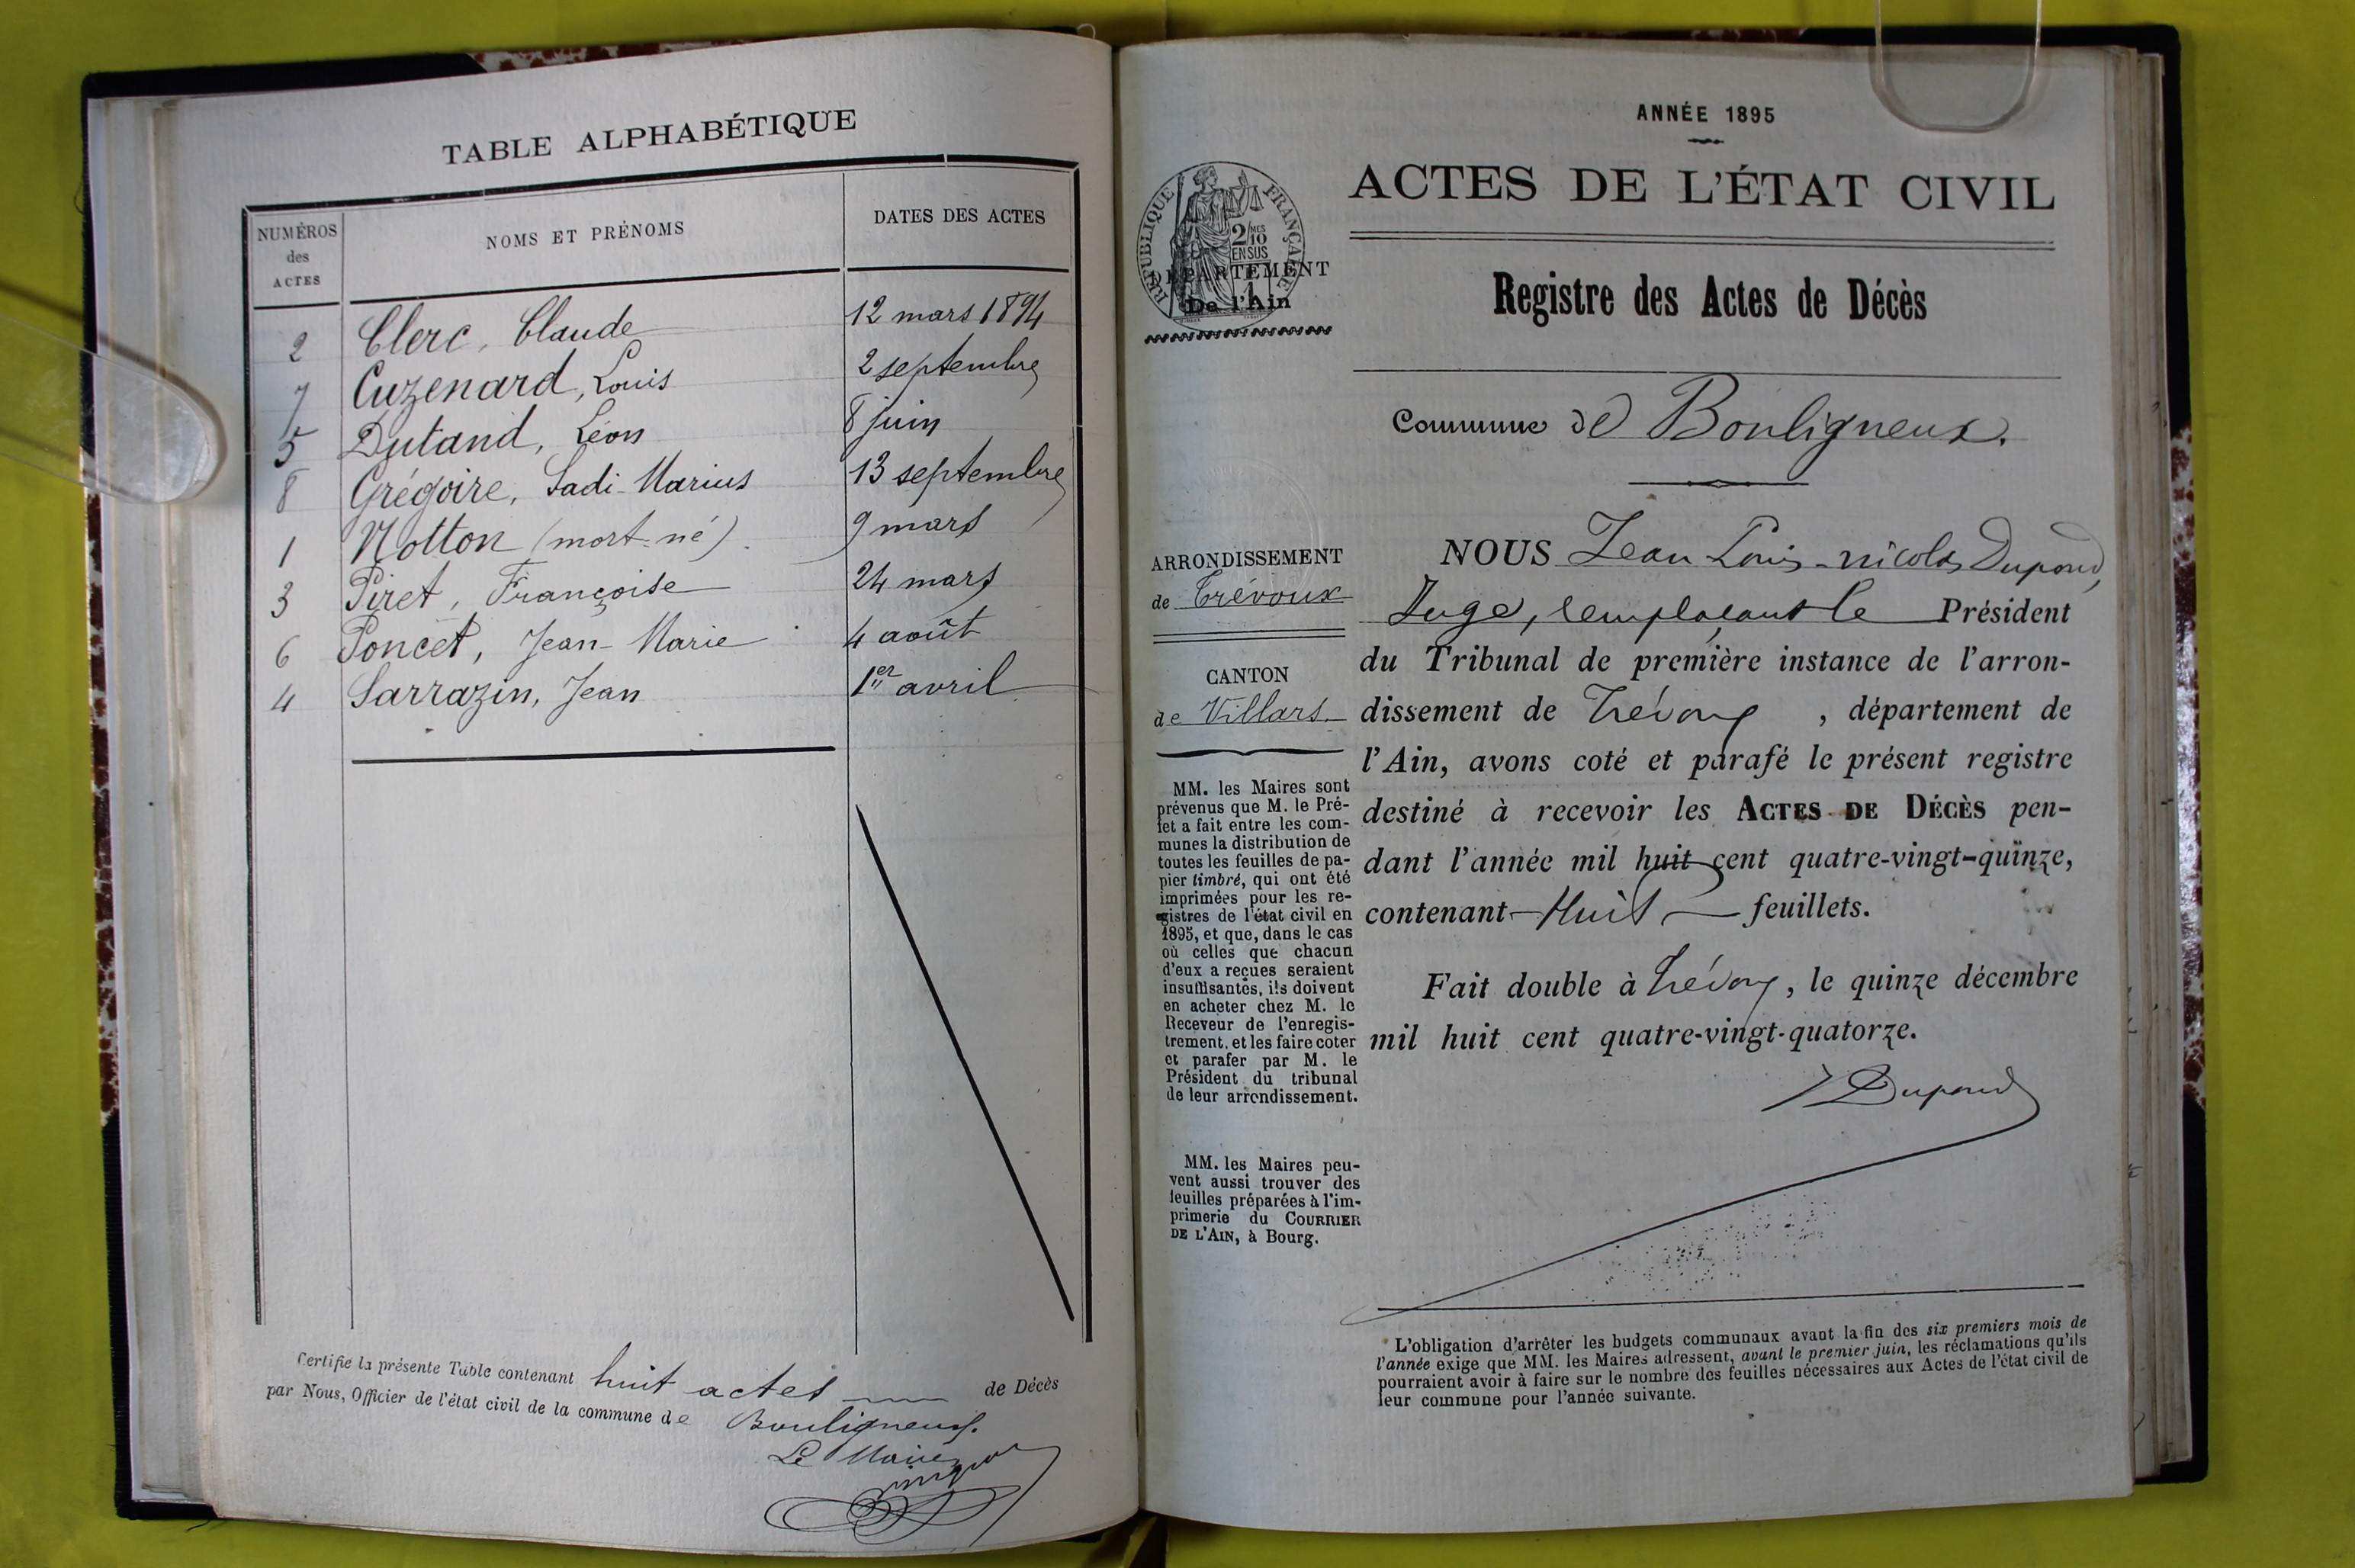 TABLE ALPHABÉTIQUE
NUMÉROS des ACTES
NOMS ET PRÉNOMS
DATES DES ACTES
2 Clerc, Claude 12 mars 1894
7 Cuzenard, Louis 2 septembre
5 Dutand, Léon 8 juin
8 Grégoire, Sadi-Marius 13 septembre
1 Notton (mort-né). 9 mars
3 Piret, Françoise 24 mars
6 Poncet, Jean-Marie 4 août
4 Sarrazin, Jean 1er avril
Certifié la présente Table contenant huit actes de Décès
par Nous, Officier de l'état civil de la commune de Bouligneux.
Le Maire
ANNÉE 1895
ACTES DE L'ÉTAT CIVIL
RÉPUBLIQUE FRANÇAISE
2/10 MES
EN SUS
DÉPARTEMENT
De l'Ain
Registre des Actes de Décès
Commune de Bouligneux.
ARRONDISSEMENT
de Trévoux
CANTON
de Villars
MM. les Maires sont
prévenus que M. le Pré-
fet a fait entre les com-
munes la distribution de
toutes les feuilles de pa-
pier timbré, qui ont été
imprimées pour les re-
gistres de l'état civil en
1895, et que, dans le cas
où celles que chacun
d'eux a reçues seraient
insuffisantes, ils doivent
en acheter chez M. le
Receveur de l'enregis-
trement, et les faire coter
et parafer par M. le
Président du tribunal
de leur arrondissement.
MM. les Maires peu-
vent aussi trouver des
feuilles préparées à l'im-
primerie du COURRIER
DE L'AIN, à Bourg.
NOUS Jean Louis-nicolas Dupond,
Juge, remplaçant le Président
du Tribunal de première instance de l'arron-
dissement de Trévoux, département de
l'Ain, avons coté et parafé le présent registre
destiné à recevoir les ACTES DE DÉCÈS pen-
dant l'année mil huit cent quatre-vingt-quinze,
contenant Huit feuillets.
Fait double à Trévoux, le quinze décembre
mil huit cent quatre-vingt-quatorze.
Dupond
L'obligation d'arrêter les budgets communaux avant la fin des six premiers mois de
l'année exige que MM. les Maires adressent, avant le premier juin, les réclamations qu'ils
pourraient avoir à faire sur le nombre des feuilles nécessaires aux Actes de l'état civil de
leur commune pour l'année suivante.